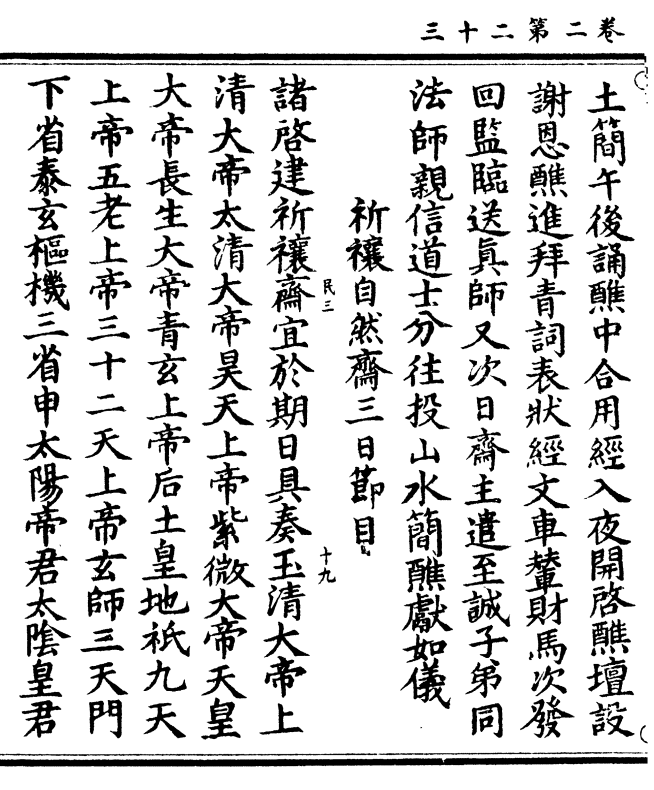 卷二第二十三
土簡午後誦醮中合用經入夜開啓醮壇設
謝恩醮進拜青詞表狀經文車輦財馬次發
回監臨送眞師又次日齋主遣至誠子弟同
法師親信道士分往投山水簡醮獻如儀
祈禳自然齋三日節目
民三
諸啓建祈禳齋宜於期日具奏玉清大帝上
十九
清大帝太清大帝昊天上帝紫微大帝天皇
大帝長生大帝青玄上帝后土皇地祇九天
上帝五老上帝三十二天上帝玄師三天門
下省泰玄樞機三省申太陽帝君太陰皇君